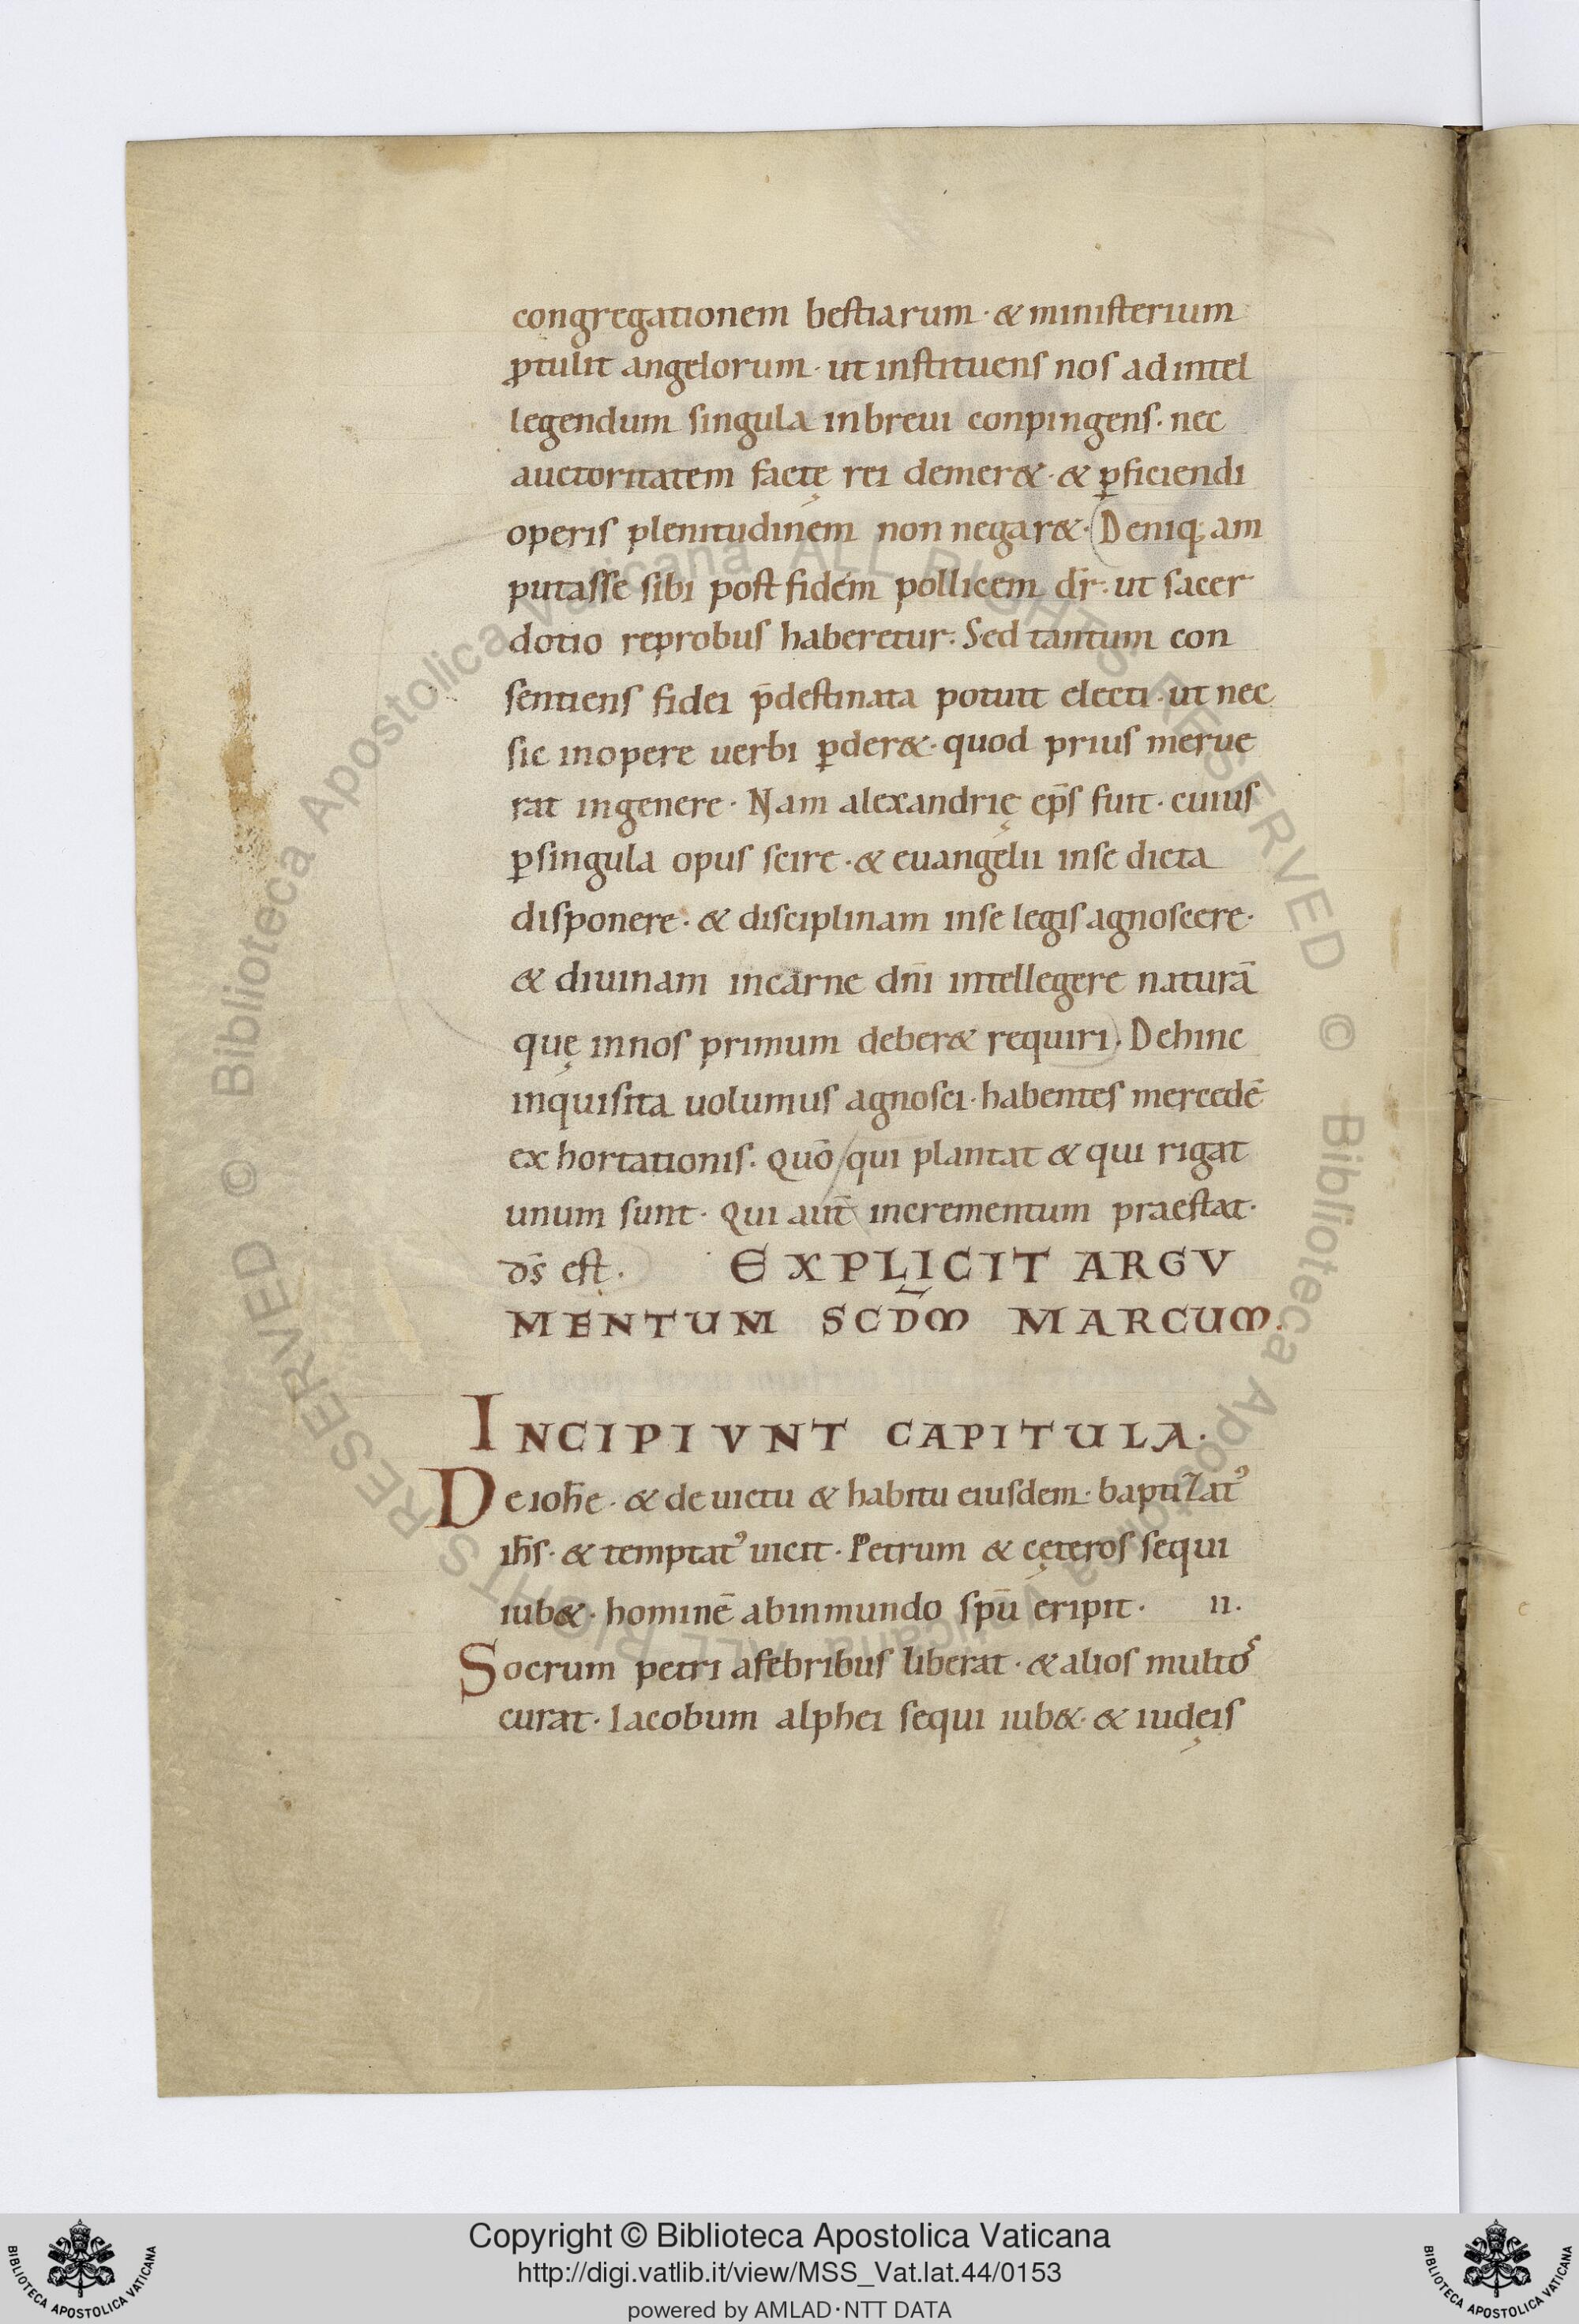 congregationem bestiarum · & ministerium
ꝓtulit angelorum · ut instituens nos ad intel
legendum singula inbreui conpingens · nec
auctoritatem factę rei demer& · & ꝑficiendi
operis plenitudinem non negar& · Deniq; am
putasse sibi post fidem pollicem dr̄ · ut sacer
dotio reprobus haberetur · Sed tantum con
sentiens fidei p̄destinata potuit electi · ut nec
sic inopere uerbi ꝑder& · quod prius merue
rat ingenere · Nam alexandrię ep̄s fuit · cuius
ꝑsingula opus scire · & euangelii inse dicta
disponere · & disciplinam inse legis agnoscere ·
& diuinam incarne dn̄i intellegere naturā
quę innos primum deber& requiri · Dehinc
inquisita uolumus agnosci · habentes mercedē
exhortationis · Quō qui plantat & qui rigat
unum sunt · Qui aut̄ incrementum praestat ·
ds̄ est · EXPLICIT ARGV
MENTUM SCDM MARCUM ·
INCIPIVNT CAPITULA ·
De ioh̄e · & de uictu & habitu eiusdem · baptizatꝰ
ih̄s · & temptatꝰ uicit · Petrum & cęteros sequi
iub& · hominē abinmundo spū eripit · II ·
Socrum petri afebribus liberat · & alios multos
curat · Iacobum alphei sequi iub& · & iudęis
© Biblioteca Apostolica Vaticana ALL RIGHTS RESERVED
© Biblioteca Apostolica Vaticana ALL RIGHTS RESERVED
Copyright © Biblioteca Apostolica Vaticana
http://digi.vatlib.it/view/MSS_Vat.lat.44/0153
powered by AMLAD·NTT DATA
BIBLIOTECA APOSTOLICA VATICANA
BIBLIOTECA APOSTOLICA VATICANA